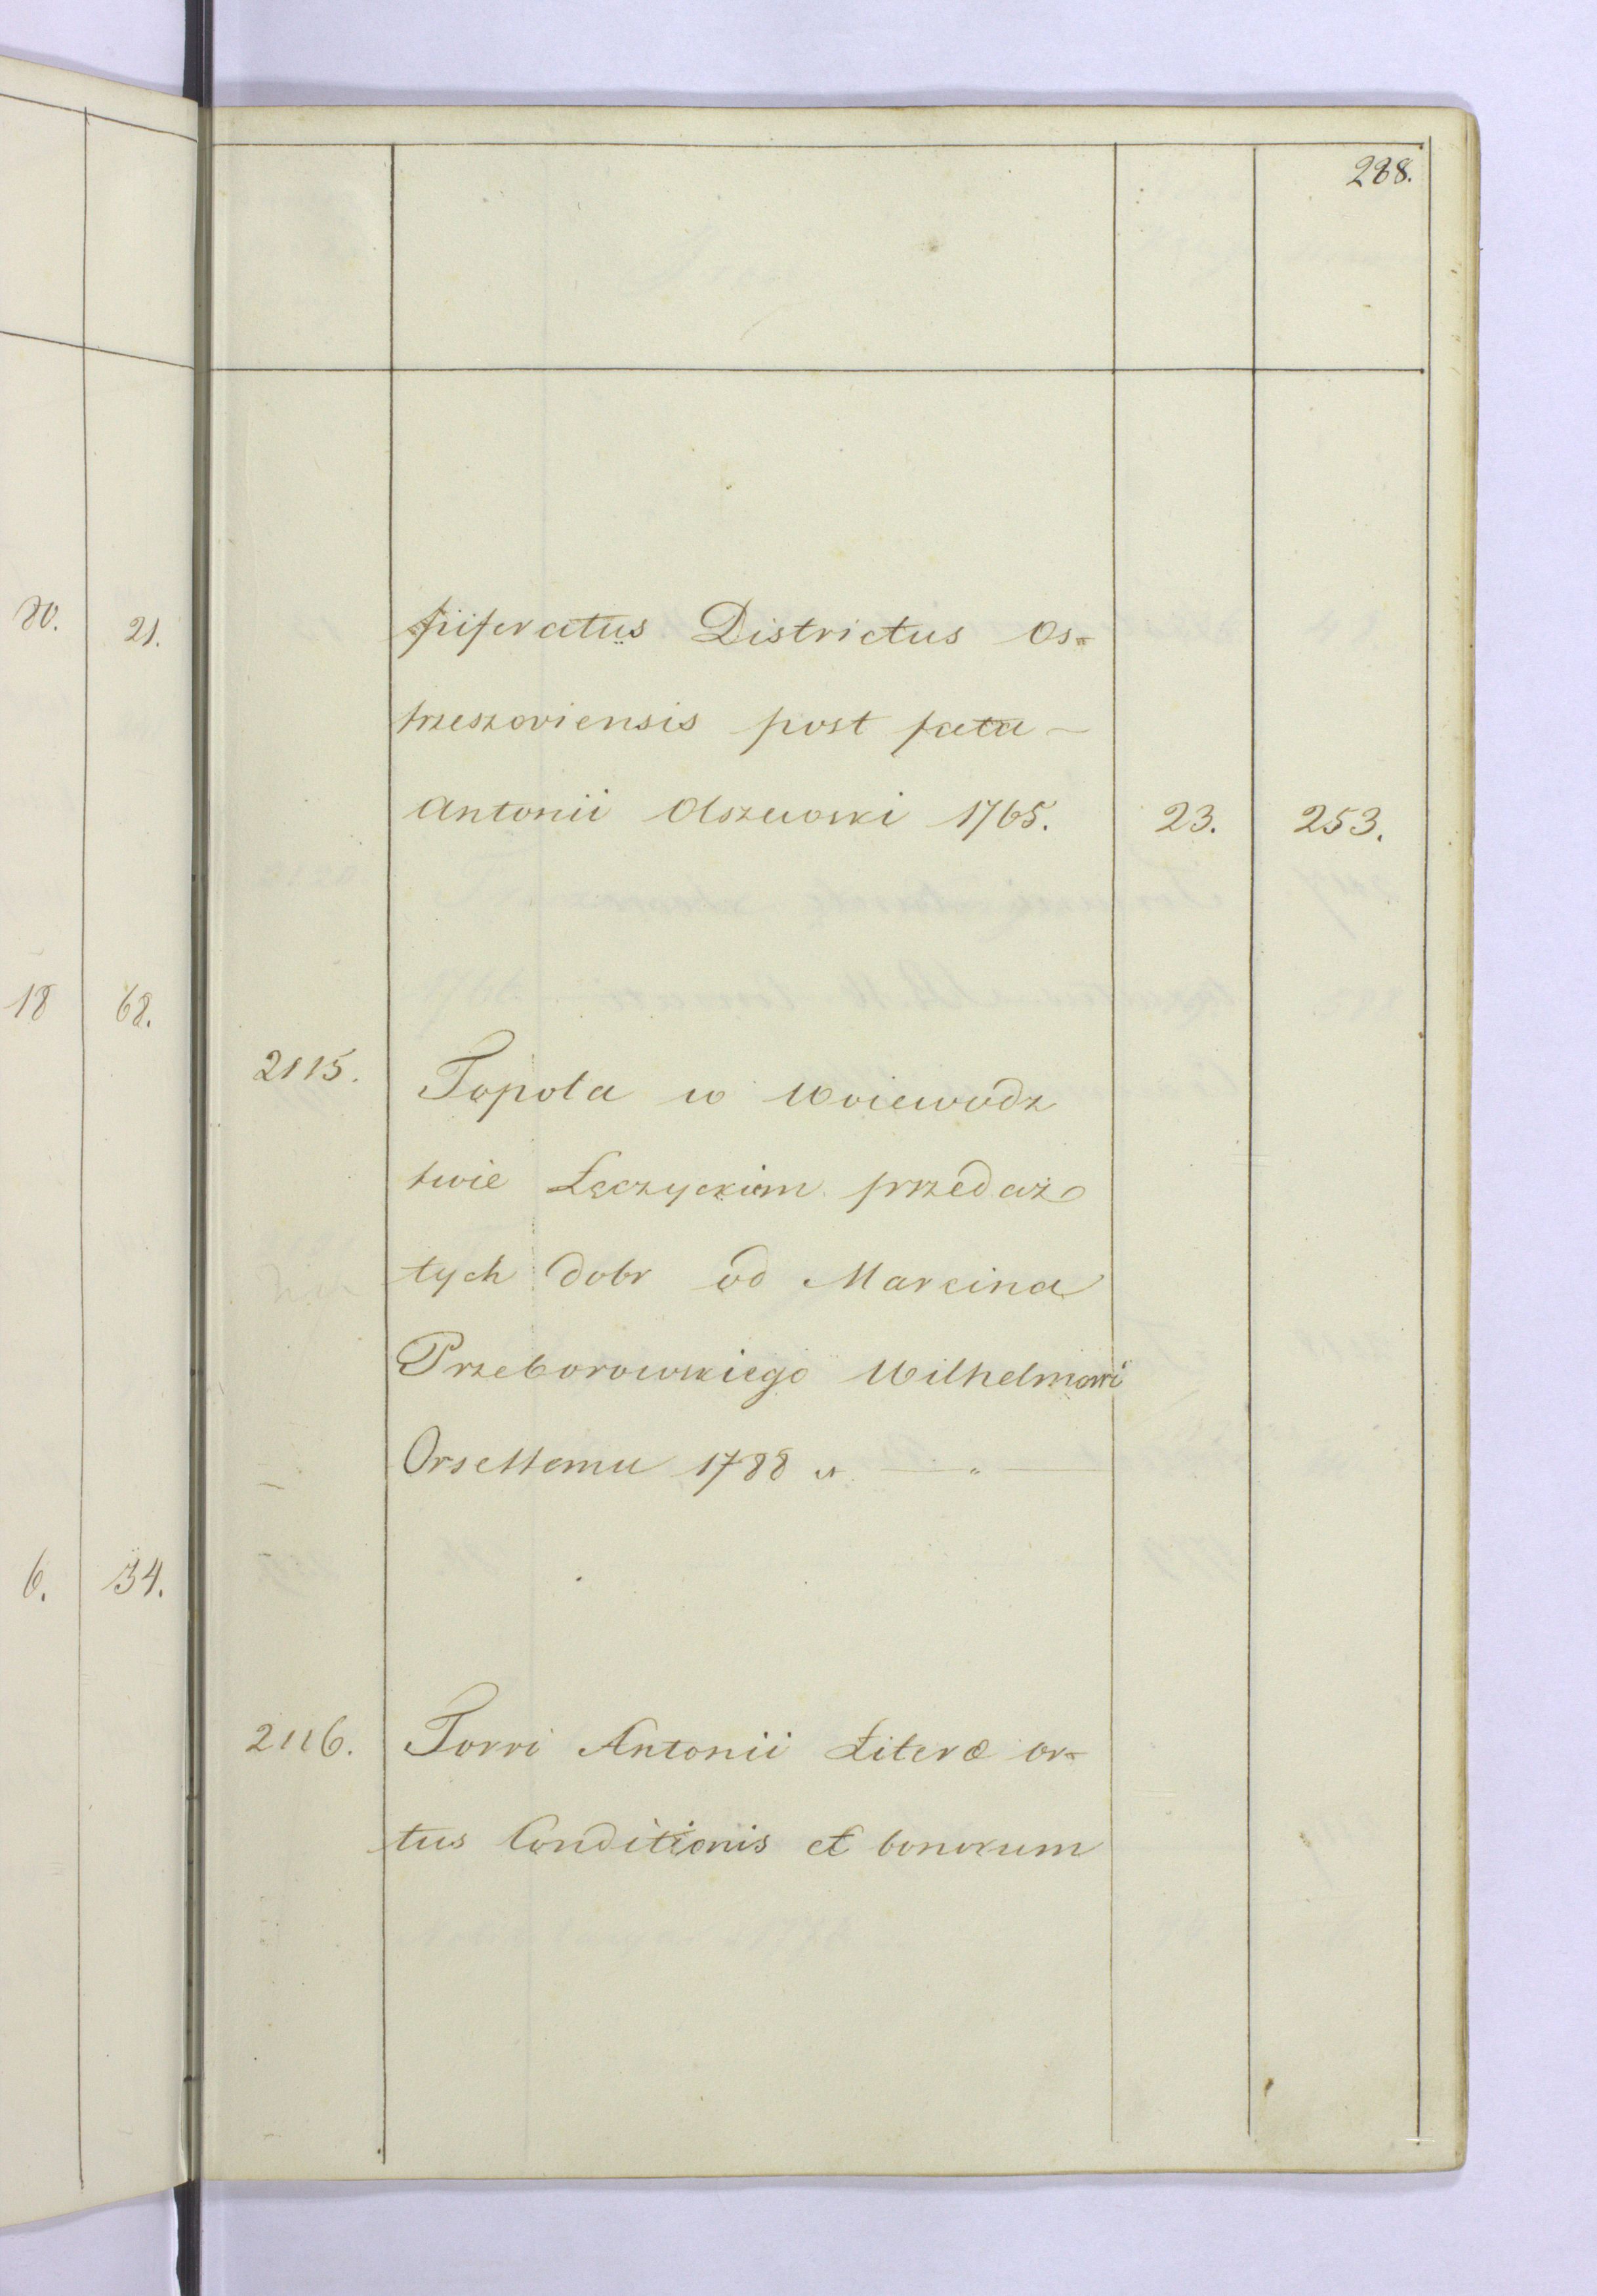 288.
20. 21.
piiferatus Districtus Os=
trzeszoviensis post fata —
Antonii Olszewski 1765. 23. 253.
18 68.
2115. Topola w Woiewodz
twie Łęczyckim przedaż
tych dobr od Marcina
Przeborowskiego Wilhelmowi
Orsettemu 1788 r. — „ —
6. 34.
2116. Torri Antonii Literæ or=
tus Conditionis et bonorum